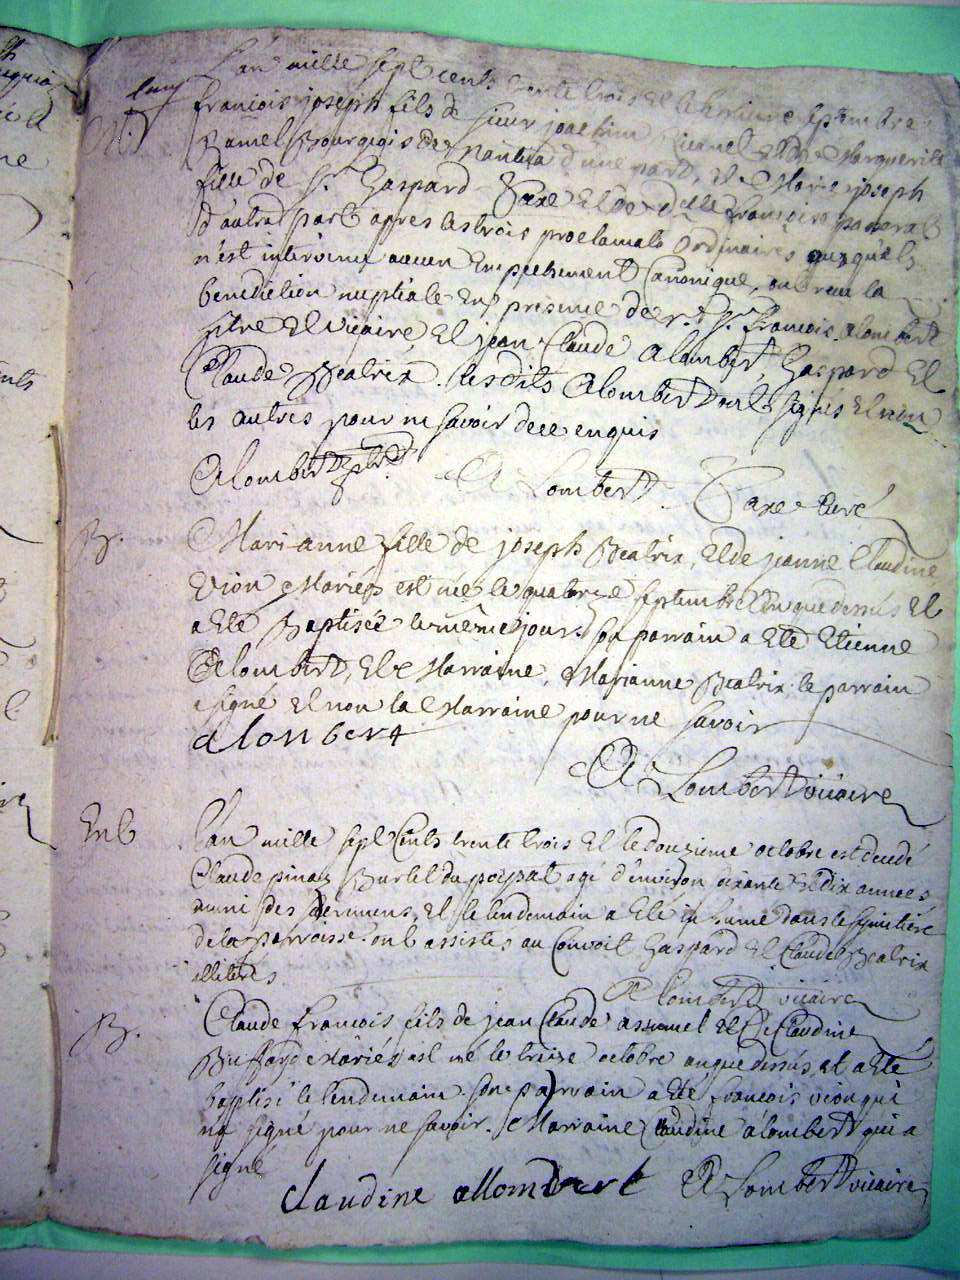 L'an mille sept cents trente trois et le septembre
francois joseph fils de sieur joachim et de Marguerite
Ramel Bourgeois de Nantua d'une part, et Marie joseph
fille de Sr Gaspard Taxe et de delle francoise
d'autre part apres les trois proclamats ordinaires auxquels
n'est intervenu aucun Empechement Canonique, ont receu la
benediction nuptiale En presence de francois alombert
ptre et vicaire, et jean Claude Alombert, Gaspard et
Claude Beatrix. lesdits Alombert ont signés et non
les autres pour ne savoir de ce enquis
Alombert ptre Alombert Taxe Curé
B. Marianne fille de joseph Beatrix, et de jeanne Claudine
Vion Mariés est née le quatorze septembre L'an que dessus et
a été Baptisée le même jour son parrain a été Etienne
Alombert, et Marraine, Marianne Beatrix. le parrain
a signé et non la Marraine pour ne savoir
alonbert
Alombert vicaire
Ent L'an mille sept Cents trente trois et le douzieme octobre est decedé
Claude pinaz Burlet du poyzat agé d'environ soixante et dix années
muni des sacremens, et le lendemain a été inhumé dans le
de la parroisse. ont assistés au Convoit Gaspard et Claude Beatrix
illiterés
Alombert vicaire
B. Claude francois fils de jean Claude et de Claudine
Buffard Mariés est né le treize octobre an que dessus et a été
baptisé le lendemain. son parrain a été francois vion qui
na signé pour ne savoir. Marraine Claudine alombert qui a
signé
claudine allombert Alombert vicaire